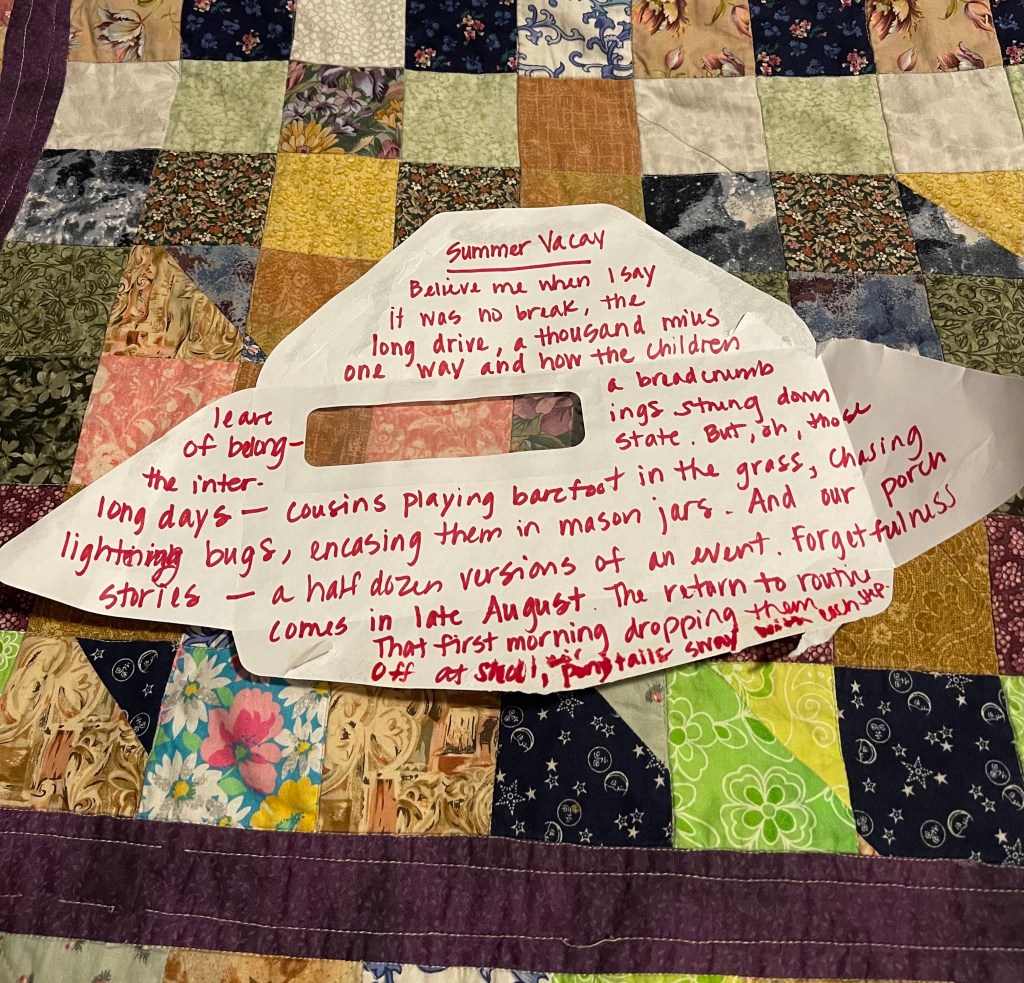 Summer Vacay
Believe me when I say
it was no break, the
long drive, a thousand miles
one way and how the children
leave a breadcrumb
of belong- ings strung down
the inter- state. But, oh, those
long days — cousins playing barefoot in the grass, chasing
lightning bugs, encasing them in mason jars. And our porch
stories — a half dozen versions of an event. Forgetfulness
comes in late August. The return to routine
That first morning dropping them
off at school, ponytails sway with each step.